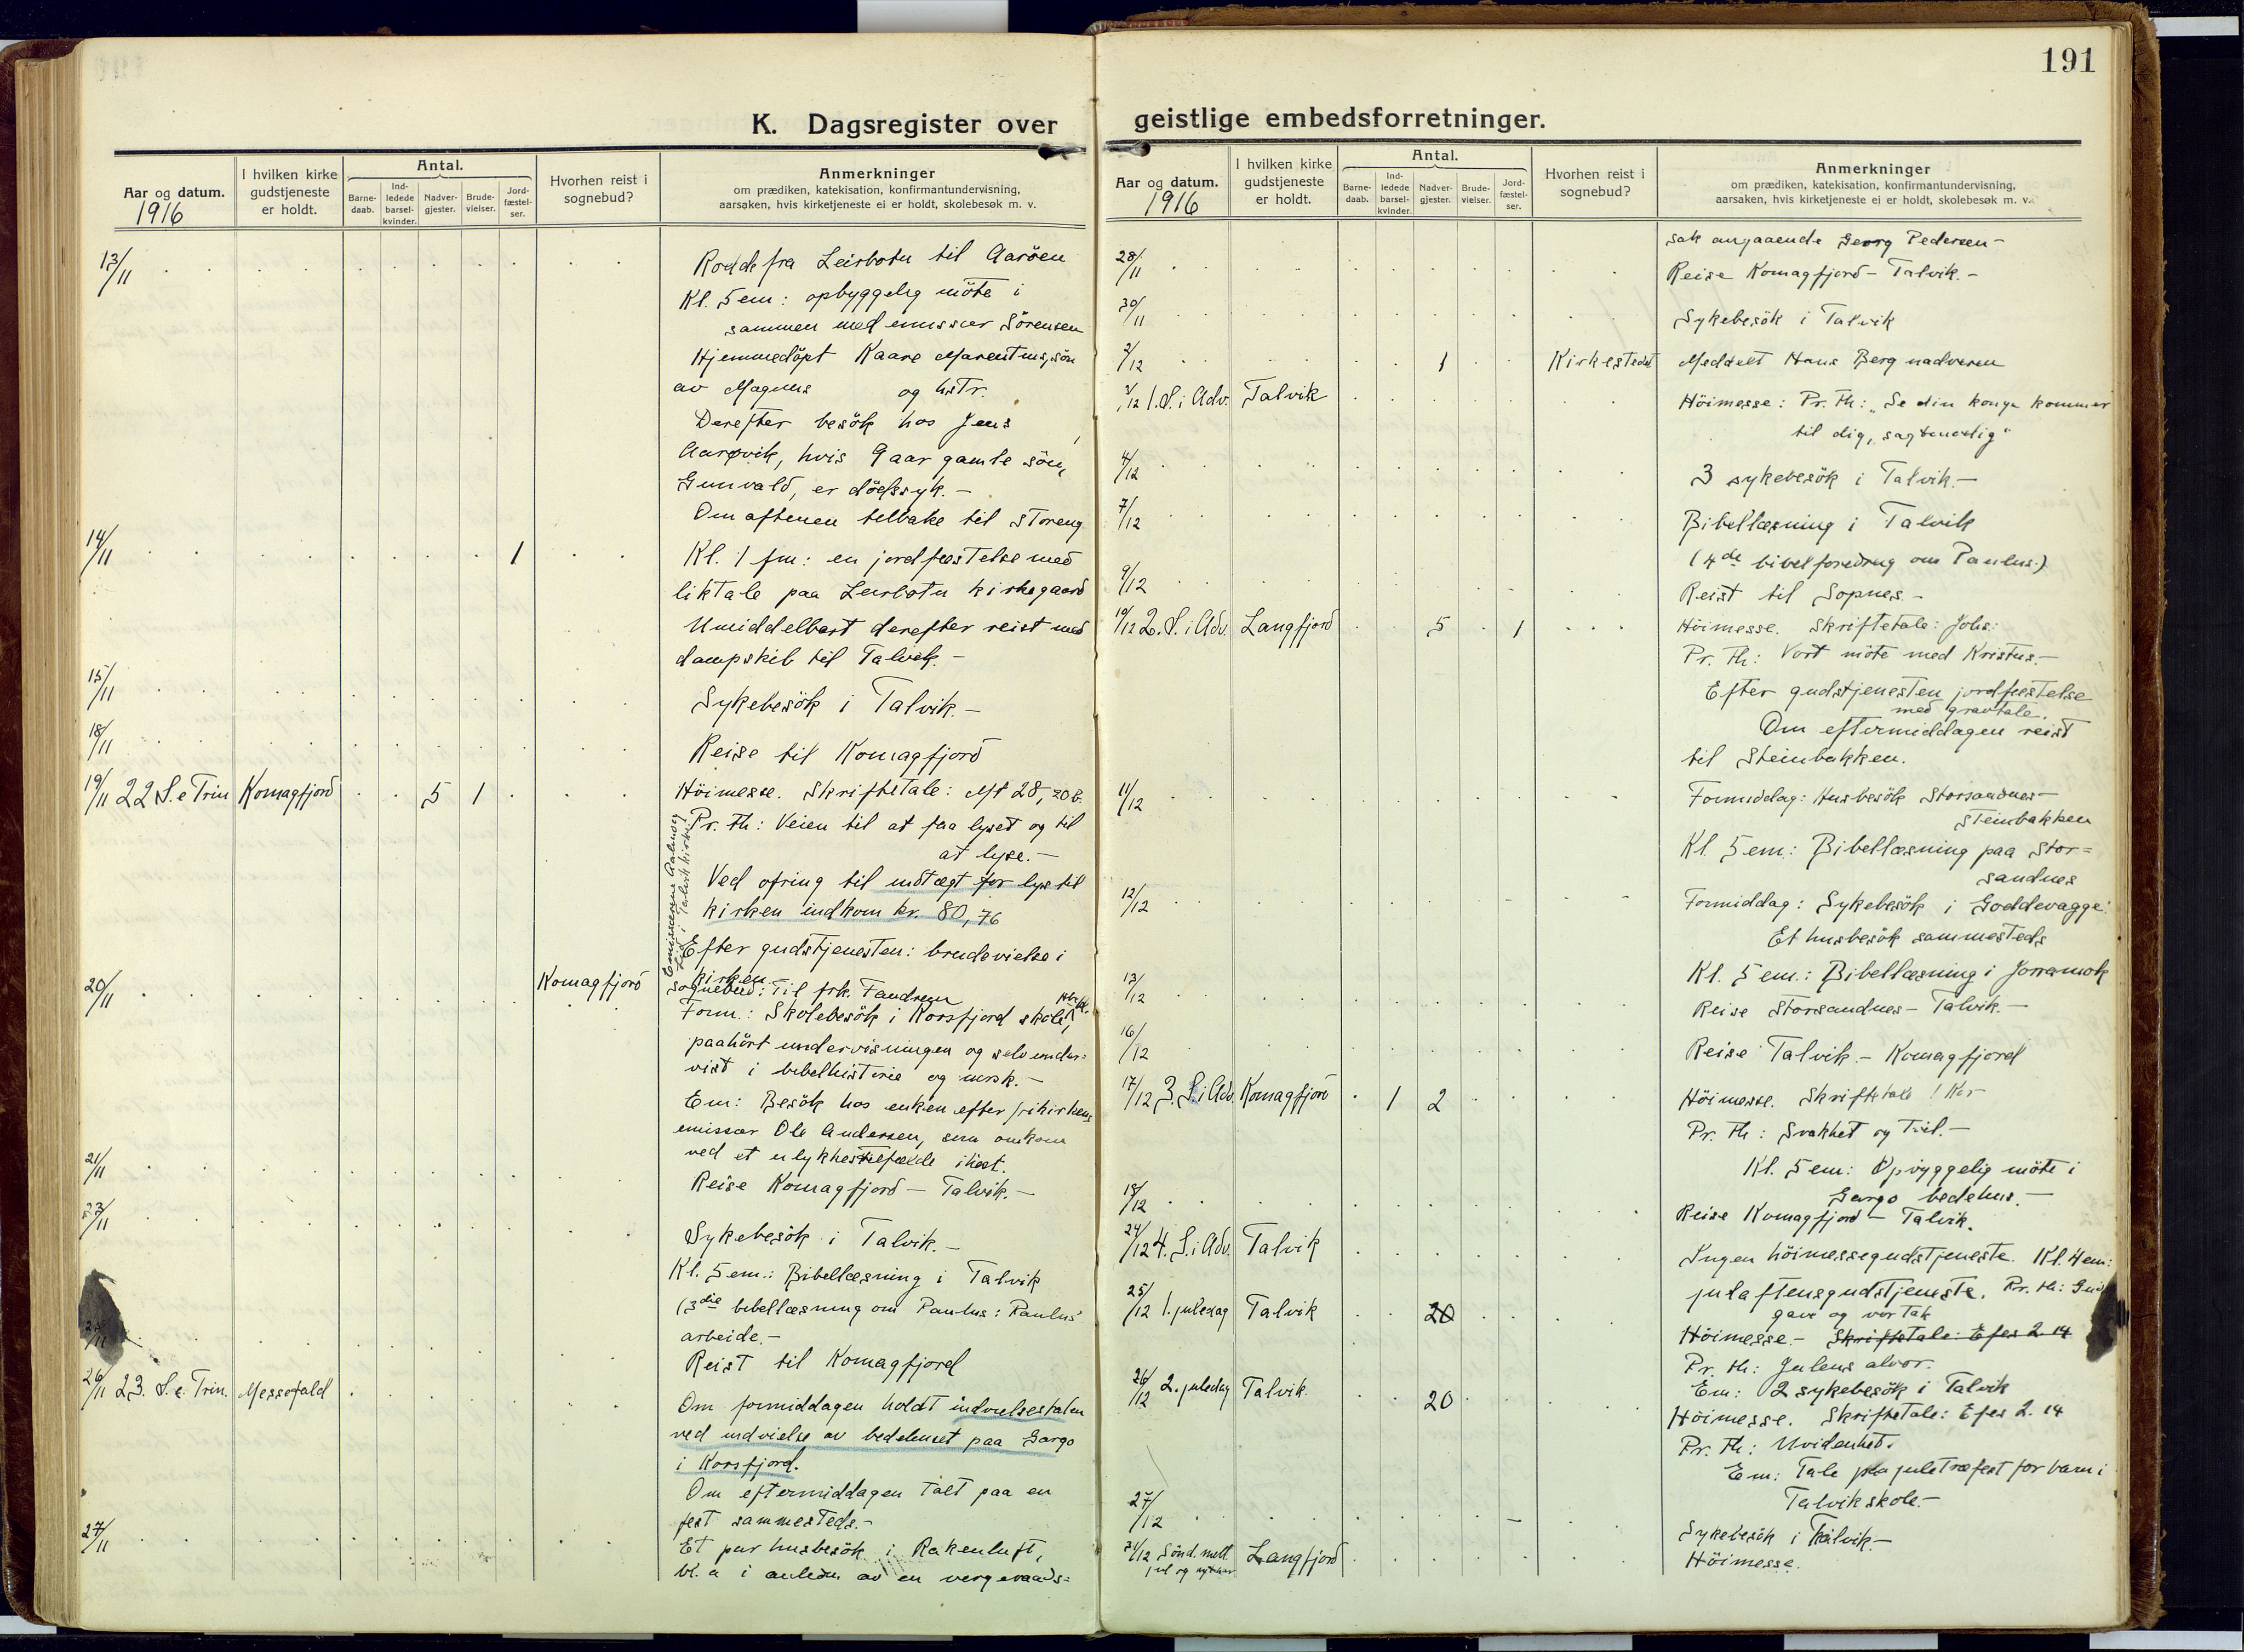 191
K. Dagsregister over geistlige embedsforretninger.
Aar og datum.
1916
I hvilken kirke gudstjeneste er holdt.
Antal.
Barne-daab.
Ind-ledede barsel-kvinder.
Nadver-gjester.
Brude-vielser.
Jord-fæstel-ser.
Hvorhen reist i sognebud?
Anmerkninger
om prædiken, katekisation, konfirmantundervisning,
aarsaken, hvis kirketjeneste ei er holdt, skolebesøk m. v.
13/11 Rodde fra Leirbotn til Aarøen
Kl. 5 em: opbyggelig möte i
sammen med emissær Sörensen
Hjemmedöpt Kaare Marentius, sön
av Magnus og hstr.
Derefter besök hos Jens
Aarøvik, hvis 9 aar gamle sön,
Gunvald, er dödssyk. -
Om aftenen tilbake til Storeng
14/11 1 Kl. 1 fm: en jordfæstelse med
liktale paa Leirbotn kirkegaard
Umiddelbart derefter reist med
dampskib til Talvik. -
15/11 Sykebesök i Talvik. -
18/11 Reise til Komagfjord
19/11 22 S. e Trin Komagfjord 5 1 Höimesse. Skriftetale: Mt 28, 20 b.
Pr. th: Veien til at faa lyset og til
at lyse. -
Ved ofring til indtægt for lys til
kirken indkom kr. 80,76
Efter gudstjenesten: brudevielse i
kirken
Emissærene
i Talvik kirke
20/11 Komagfjord Sognebud: Til frk. Fandrem
Form.: Skolebesök i Korsfjord skole,
paahört undervisningen og selv under-
vist i bibelhistorie og norsk. -
Em: Besök hos enken efter frikirkens
emissær Ole Andersen, som omkom
ved et ulykkestilfælde ihöst.
21/11 Reise Komagfjord - Talvik. -
23/11 Sykebesök i Talvik. -
Kl. 5 em.: Bibellæsning i Talvik
(3die bibellæsning om Paulus: Paulus'
arbeide. -
Reist til Komagfjord
26/11 23. S. e. Trin. Messefald Om formiddagen holdt indvielsestalen
ved indvielse av bedehuset paa Gargo
i Korsfjord.
Om eftermiddagen talt paa en
fest sammesteds. -
27/11 Et par husbesök i Rakenluft,
bl. a i anledn av en vergeraads=
Aar og datum.
1916
I hvilken kirke gudstjeneste er holdt.
Antal.
Barne-daab.
Ind-ledede barsel-kvinder.
Nadver-gjester.
Brude-vielser.
Jord-fæstel-ser.
Hvorhen reist i sognebud?
Anmerkninger
om prædiken, katekisation, konfirmantundervisning,
aarsaken, hvis kirketjeneste ei er holdt, skolebesøk m. v.
sak angaaende Georg Pedersen -
28/11 Reise Komagfjord - Talvik. -
30/11 Sykebesök i Talvik
2/12 1 Kirkestedet Meddelt Hans Berg nadveren
3/12 1. S. i Adv. Talvik Höimesse: Pr. th: "Se din konge kommer
til dig, sagtmodig"
4/12 3 sykebesök i Talvik. -
7/12 Bibellæsning i Talvik
(4de bibelforedrag om Paulus.)
9/12 Reist til Sopnes. -
10/12 2. S. i Adv. Langfjord 5 1 Höimesse. Skriftetale: Johs:
Pr. th: Vort möte med Kristus. -
Efter gudstjenesten jordfæstelse
med gravtale.
Om eftermiddagen reist
til Steinbakken.
11/12 Formiddag: Husbesök Storsandnes -
Steinbakken
Kl. 5 em: Bibellæsning paa Stor=
sandnes
12/12 Formiddag: Sykebesök i Goddevagge
Et husbesök sammesteds
Kl. 5 em.: Bibellæsning i Jorramok
13/12 Reise Storsandnes - Talvik. -
16/12 Reise Talvik - Komagfjord
17/12 3. S. i Adv. Komagfjord 1 2 Höimesse. Skriftetale 1 Kor
Pr. th: Svakhet og Tvil. -
Kl. 5 em: Opbyggelig möte i
Gargo bedehus. -
18/12 Reise Komagfjord - Talvik.
24/12 4. S. i Adv. Talvik Ingen höimessegudstjeneste. Kl. 4 em:
julaftensgudstjeneste. Pr. th: Guds
gave og vor tak
25/12 1. juledag Talvik 20 Höimesse - Skriftetale: Efes 2. 14
Pr. th: Julens alvor.
Em: 2 sykebesök i Talvik
26/12 2. juledag Talvik 20 Höimesse. Skriftetale: Efes 2. 14
Pr. th: Uvidenhet.
Em: Tale paa juletræfest for barn i
Talvik skole. -
27/12 Sykebesök i Talvik -
31/12 Sönd. mell. jul og nytaar Langfjord Höimesse.